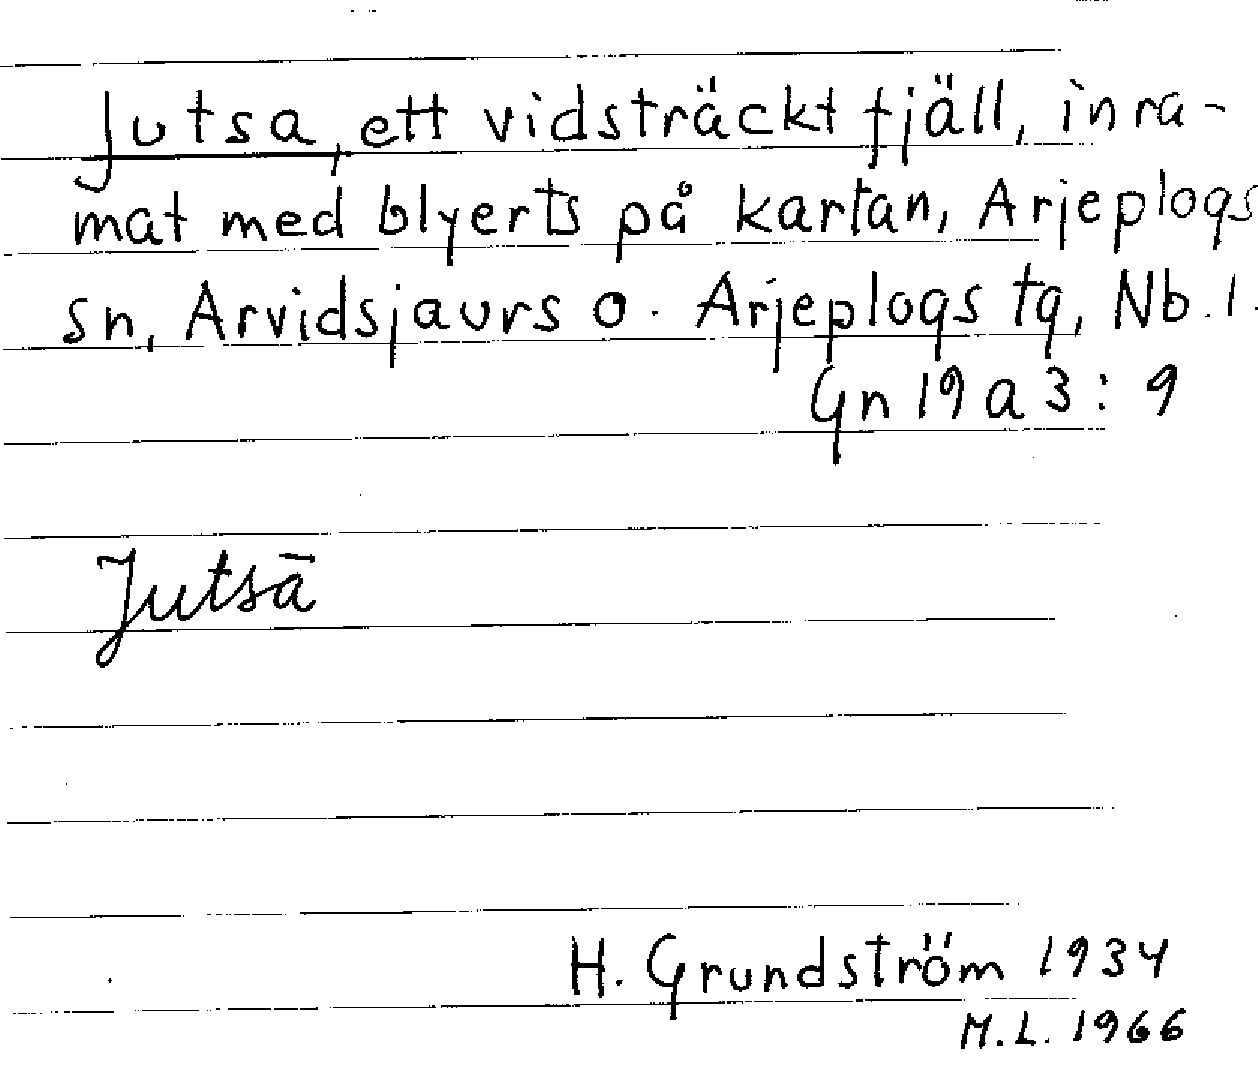 Jutsa, ett vidsträckt fjäll, inra-
mat med blyerts på kartan, Arjeplogs
sn, Arvidsjaurs o. Arjeplogs tg, Nb. l.
Gn 19 a 3 : 9
Jutsā
H. Grundström 1934
M.L. 1966